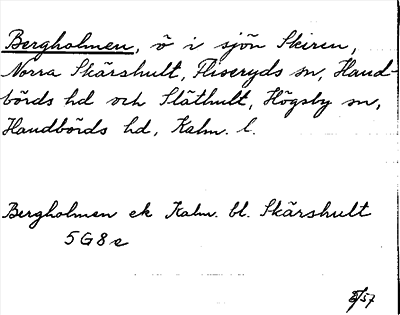 Bergholmen, ö i sjön Skiren,
Norra Skärshult, Fliseryds sn, Hand-
börds hd och Släthult, Högsby sn,
Handbörds hd, Kalm. l.
Bergholmen ek Kalm. bl. Skärshult
5G8e
/57